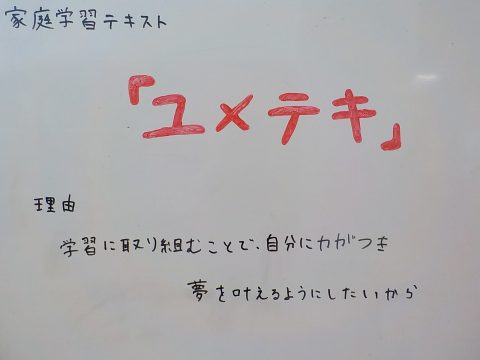 家庭学習テキスト
「ユメテキ」
理由
学習に取り組むことで、自分に力がつき
夢を叶えるようにしたいから